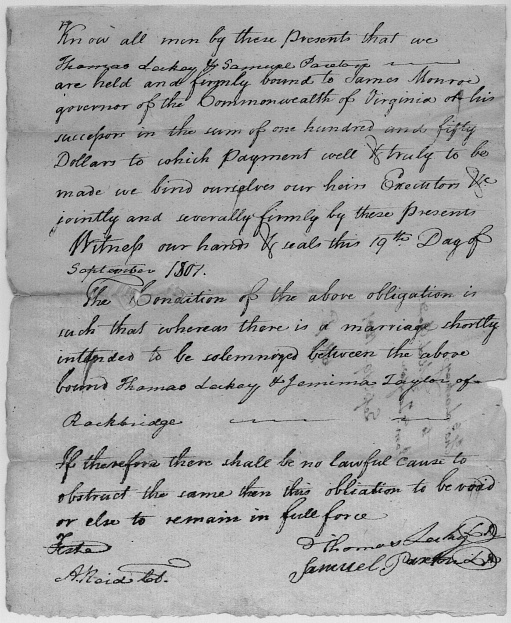 Know all men by these Presents that we
Thomas Leckey & Samuel Paxton
are held and firmly bound to James Monroe
governor of the Commonwealth of Virginia or his
successors in the sum of one hundred and fifty
Dollars to which Payment well & truly to be
made we bind ourselves our heirs Executors &c
jointly and severally firmly by these Presents
Witness our hands & seals this 19th Day of
September 1801.
The Condition of the above obligation is
such that whereas there is a marriage shortly
intended to be solemnozed between the above
bound Thomas Leckey & Jemima Taylor of
Rockbridge
If therefore there shall be no lawful cause to
obstruct the same then this obliation to be void
or else to remain in full force
Teste
Thomas Leckey
A. Reid
Samuel Paxton